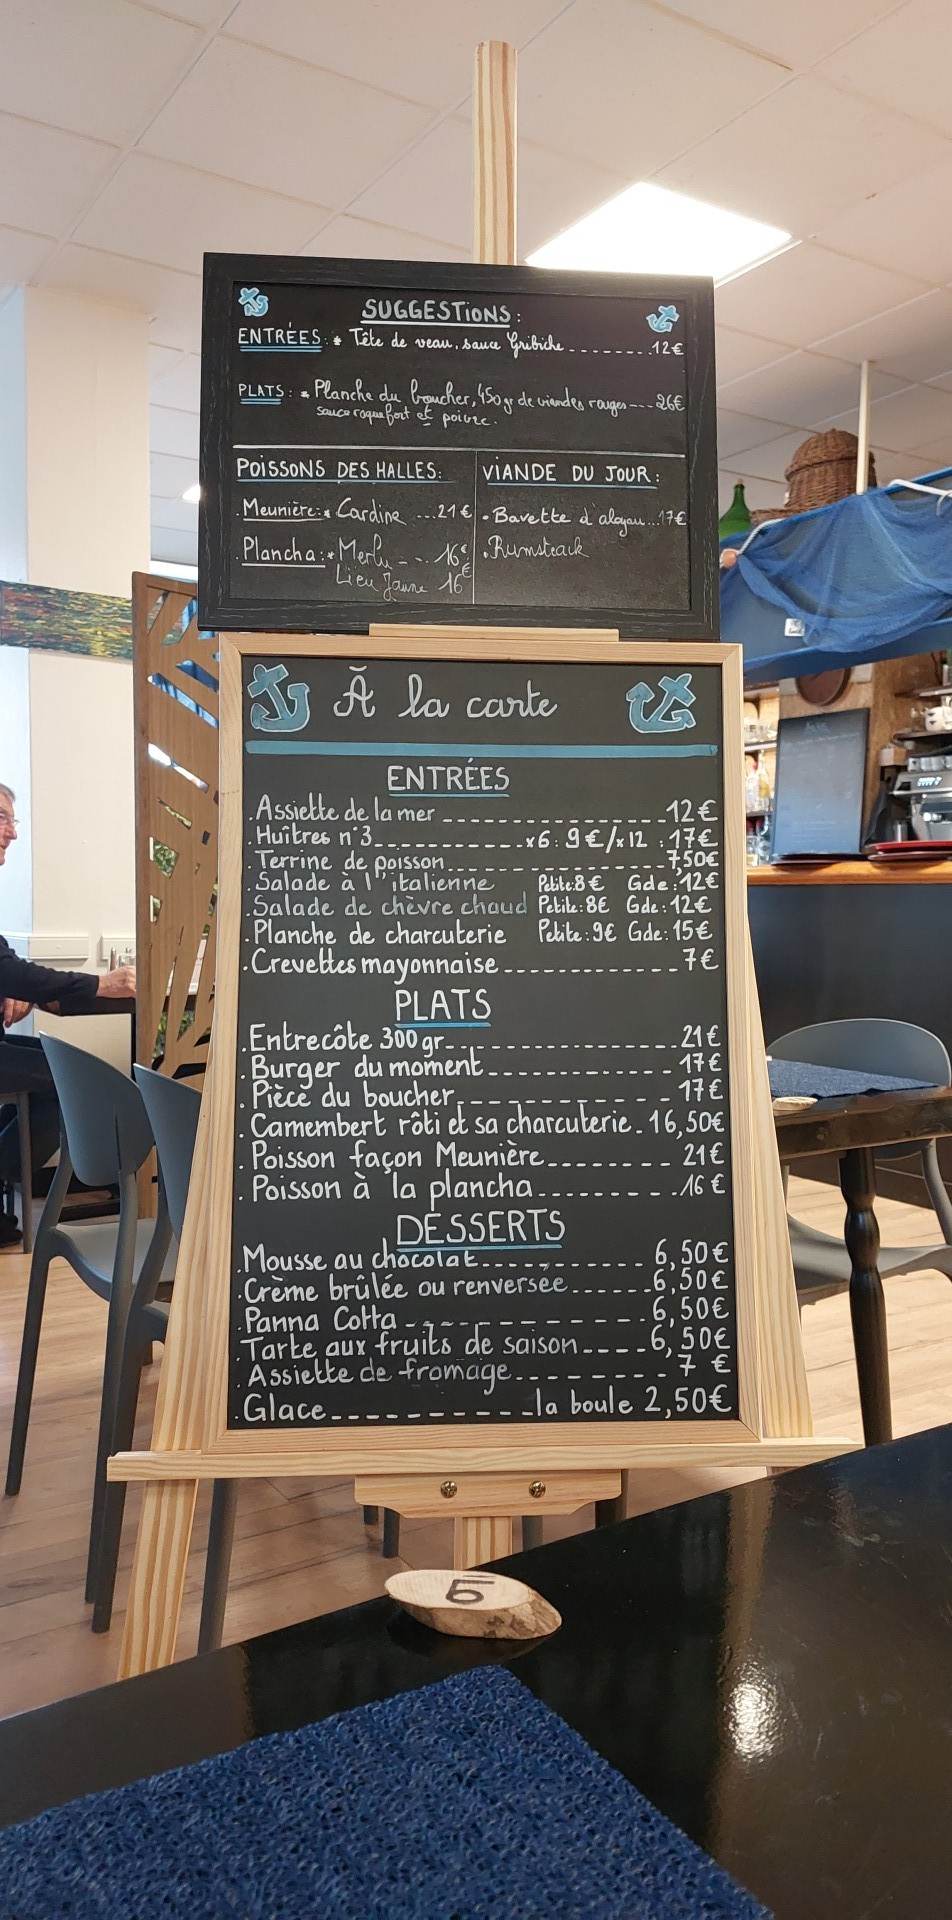 SUGGESTIONS :
ENTRÉES : * Tête de veau, sauce Gribiche -------- 12€
PLATS : * Planche du boucher, 450 gr de viandes rouges --- 26€
sauce roquefort et poivre.
POISSONS DES HALLES :
. Meunière : * Cardine ... 21€
. Plancha : * Merlu - .. 16€
Lieu Jaune 16€
VIANDE DU JOUR :
. Bavette d'aloyau ... 17€
. Rumsteack
À la carte
ENTRÉES
. Assiette de la mer ---------------- 12€
. Huîtres n°3 ----------- x6 : 9€/x12 : 17€
. Terrine de poisson ---------------- 7,50€
. Salade à l'italienne Petite : 8€ Gde : 12€
. Salade de chèvre chaud Petite : 8€ Gde : 12€
. Planche de charcuterie Petite : 9€ Gde : 15€
. Crevettes mayonnaise ------------- 7€
PLATS
. Entrecôte 300 gr ---------------- 21€
. Burger du moment ------------- 17€
. Pièce du boucher -------------- 17€
. Camembert rôti et sa charcuterie - 16,50€
. Poisson façon Meunière -------- 21€
. Poisson à la plancha --------- 16€
DESSERTS
. Mousse au chocolat ------------ 6,50€
. Crème brûlée ou renversée ------ 6,50€
. Panna Cotta --------------- 6,50€
. Tarte aux fruits de saison ---- 6,50€
. Assiette de fromage --------- 7 €
. Glace ----------- la boule 2,50€
5